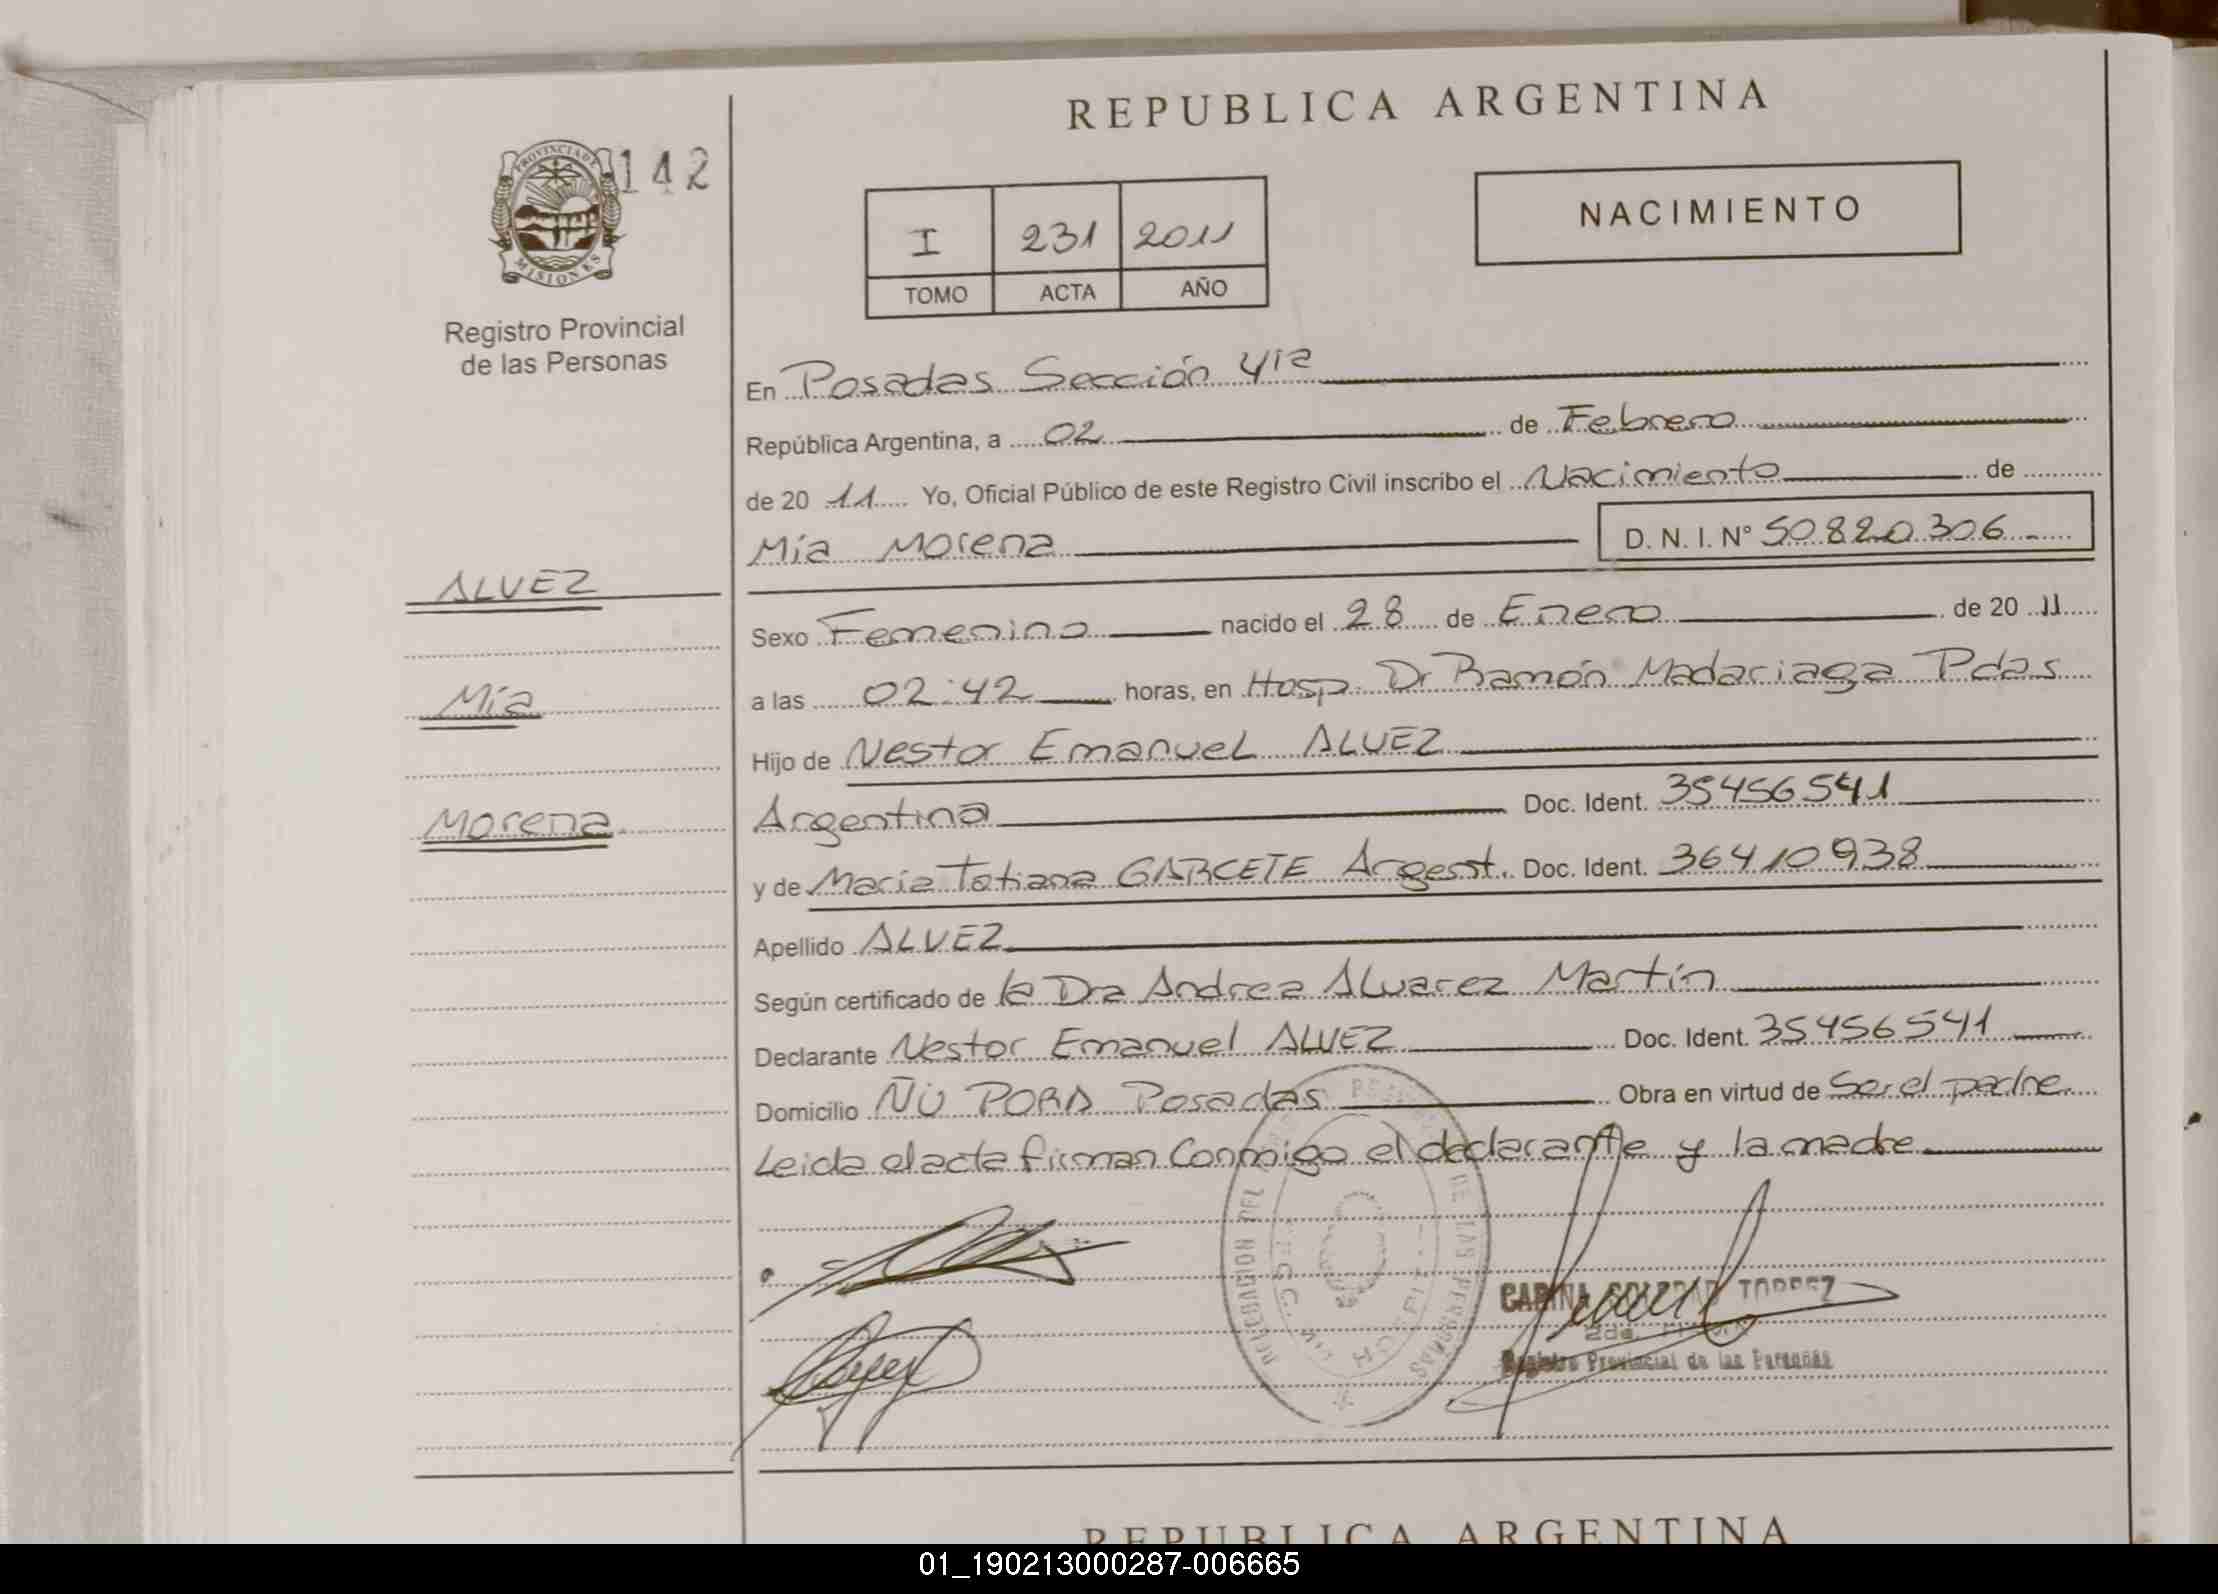 REPUBLICA ARGENTINA
PROVINCIA DE
MISIONES
142
Registro Provincial
de las Personas
I 231 2011
TOMO ACTA AÑO
NACIMIENTO
En Posadas Sección 4ta
República Argentina, a 02 de Febrero
de 20 11 Yo, Oficial Público de este Registro Civil inscribo el Nacimiento de
Mía Morena D. N. I. N° 50820306
ALVEZ
Mía
Morena
Sexo Femenino nacido el 28 de Enero de 20 11
a las 02:42 horas, en Hosp. Dr Ramón Madariaga Pdas
Hijo de Nestor Emanuel ALVEZ
Argentina Doc. Ident. 35456541
y de María Tatiana GARCETE Doc. Ident. 36410938
Apellido ALVEZ
Según certificado de la Dra Andrea Alvarez Martín
Declarante Nestor Emanuel ALVEZ Doc. Ident. 35456541
Domicilio ÑU PORA Posadas Obra en virtud de Ser el padre
Leida el acta firman Conmigo el declarante y la madre
DE LAS PERSONAS
TORREZ
Registro Provincial de las Personas
REPUBLICA ARGENTINA
01_190213000287-006665